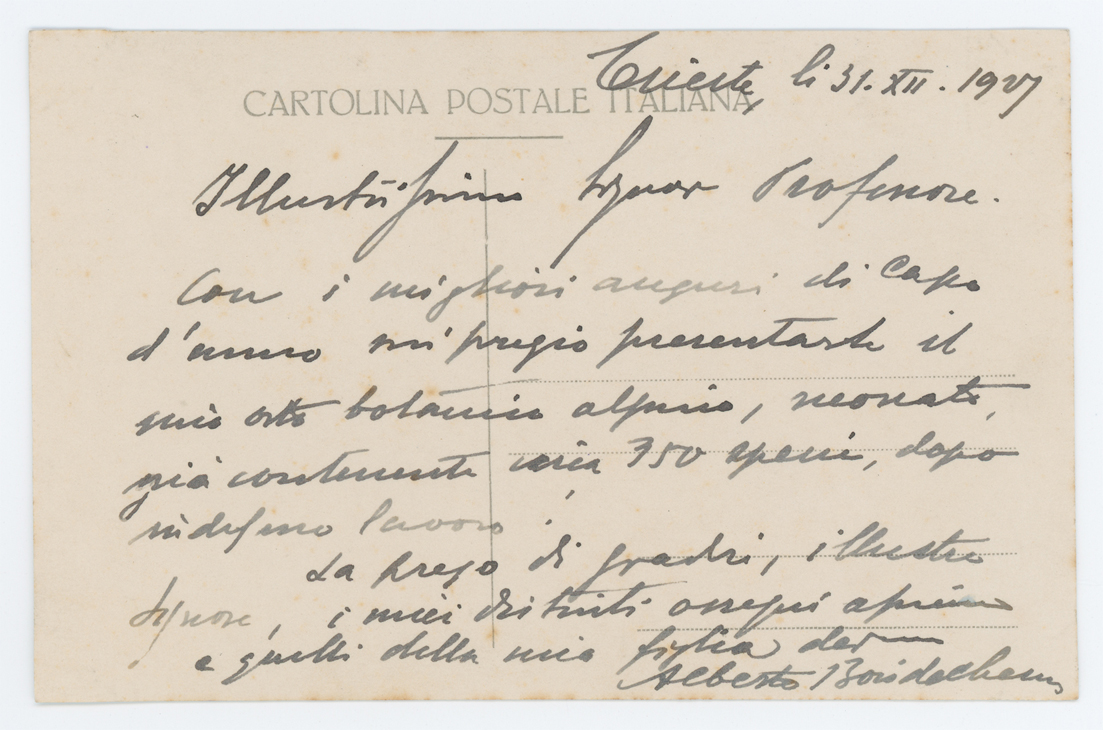 Trieste, li 31.XII.1927
CARTOLINA POSTALE ITALIANA
Illustrissimo Signor Professore.
Con i migliori auguri di Capo
d'anno mi pregio presentarle il
mio orto botanico alpino, neonato,
già contenente circa 750 specie, dopo
indefesso lavoro.
La prego di gradire, illustre
Signore, i miei distinti ossequi
e quelli della mia figlia
Alberto Bois de Chesne